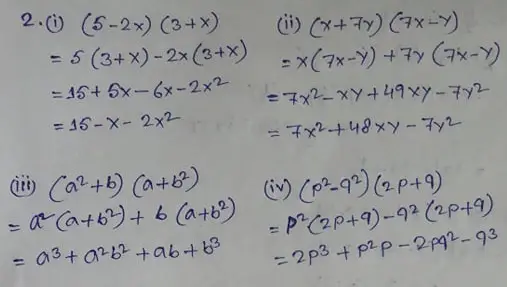 2. (i) (5-2x) (3+x)
= 5 (3+x) - 2x (3+x)
= 15 + 5x - 6x - 2x²
= 15 - x - 2x²
(ii) (x+7y) (7x-y)
= x(7x-y) + 7y (7x-y)
= 7x² - xy + 49xy - 7y²
= 7x² + 48xy - 7y²
(iii) (a²+b) (a+b²)
= a²(a+b²) + b (a+b²)
= a³ + a²b² + ab + b³
(iv) (p²-q²) (2p+q)
= p²(2p+q) - q² (2p+q)
= 2p³ + p²p - 2pq² - q³